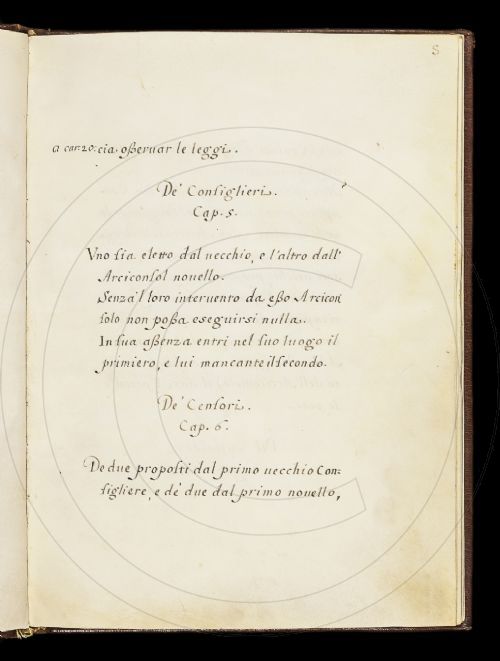 8
a car: 20: cia oßeruar le leggi.
De' Consiglieri.
Cap. 5.
Vno sia eletto dal uecchio, e l'altro dall'
Arciconsol nouello.
Senza 'l loro interuento da eßo Arcicon
solo non poßa eseguirsi nulla.
In sua aßenza entri nel suo luogo il
primiero, e lui mancante il secondo.
De' Censori.
Cap. 6.
De due proposti dal primo uecchio Con:
sigliere, e de' due dal primo nouello,